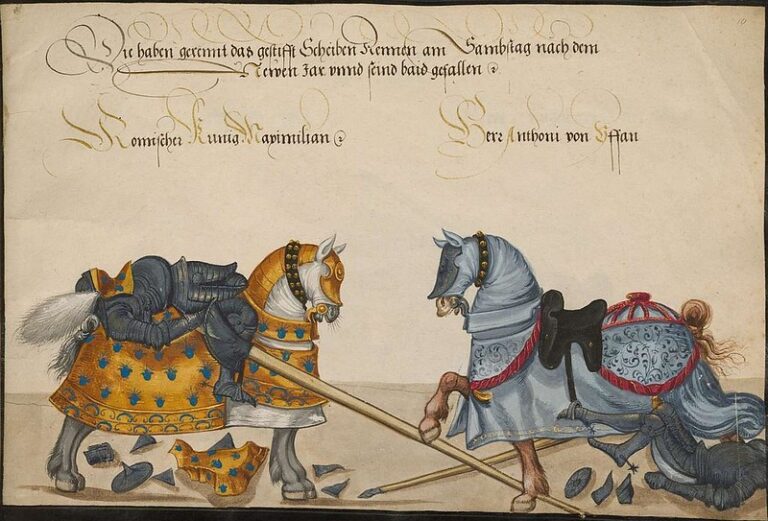 Die haben gerennt das gestifft Scheiben Rennen am Sambstag nach dem
Newen Jar vnnd seind baid gefallen
Romischer Kunig Maximilian
Herr Anthoni von Yffan
10